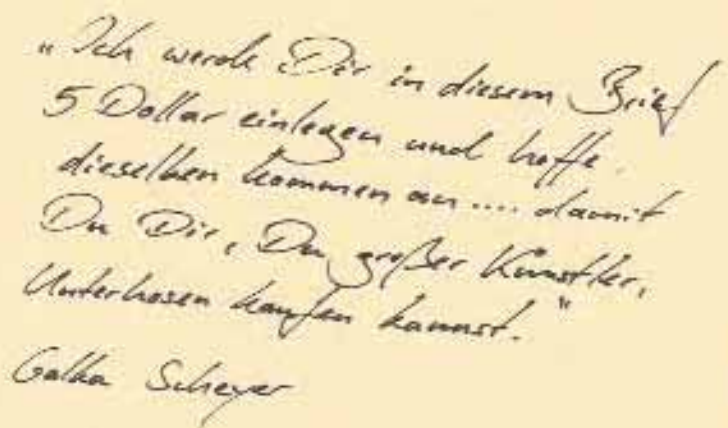 „Ich werde Dir in diesem Brief
5 Dollar einlegen und hoffe
dieselben kommen an .... damit
Du Dir, Du großer Künstler,
Unterhosen kaufen kannst."
Galka Scheyer